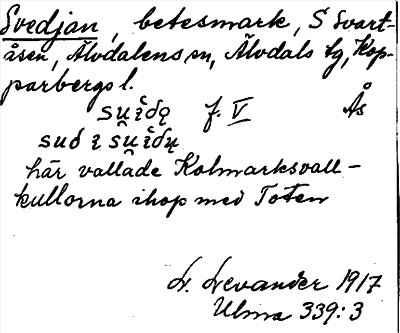 Svedjan, betesmark, S Svart-
åsen, Älvdalens sn, Älvdals tg, Kop-
parbergs l.
su̯i̊dǫ f. V Ås
sud i su̯i̊dų
här vallade Kolmarksvall-
kullorna ihop med Toten
L. Levander 1917
Ulma 339:3